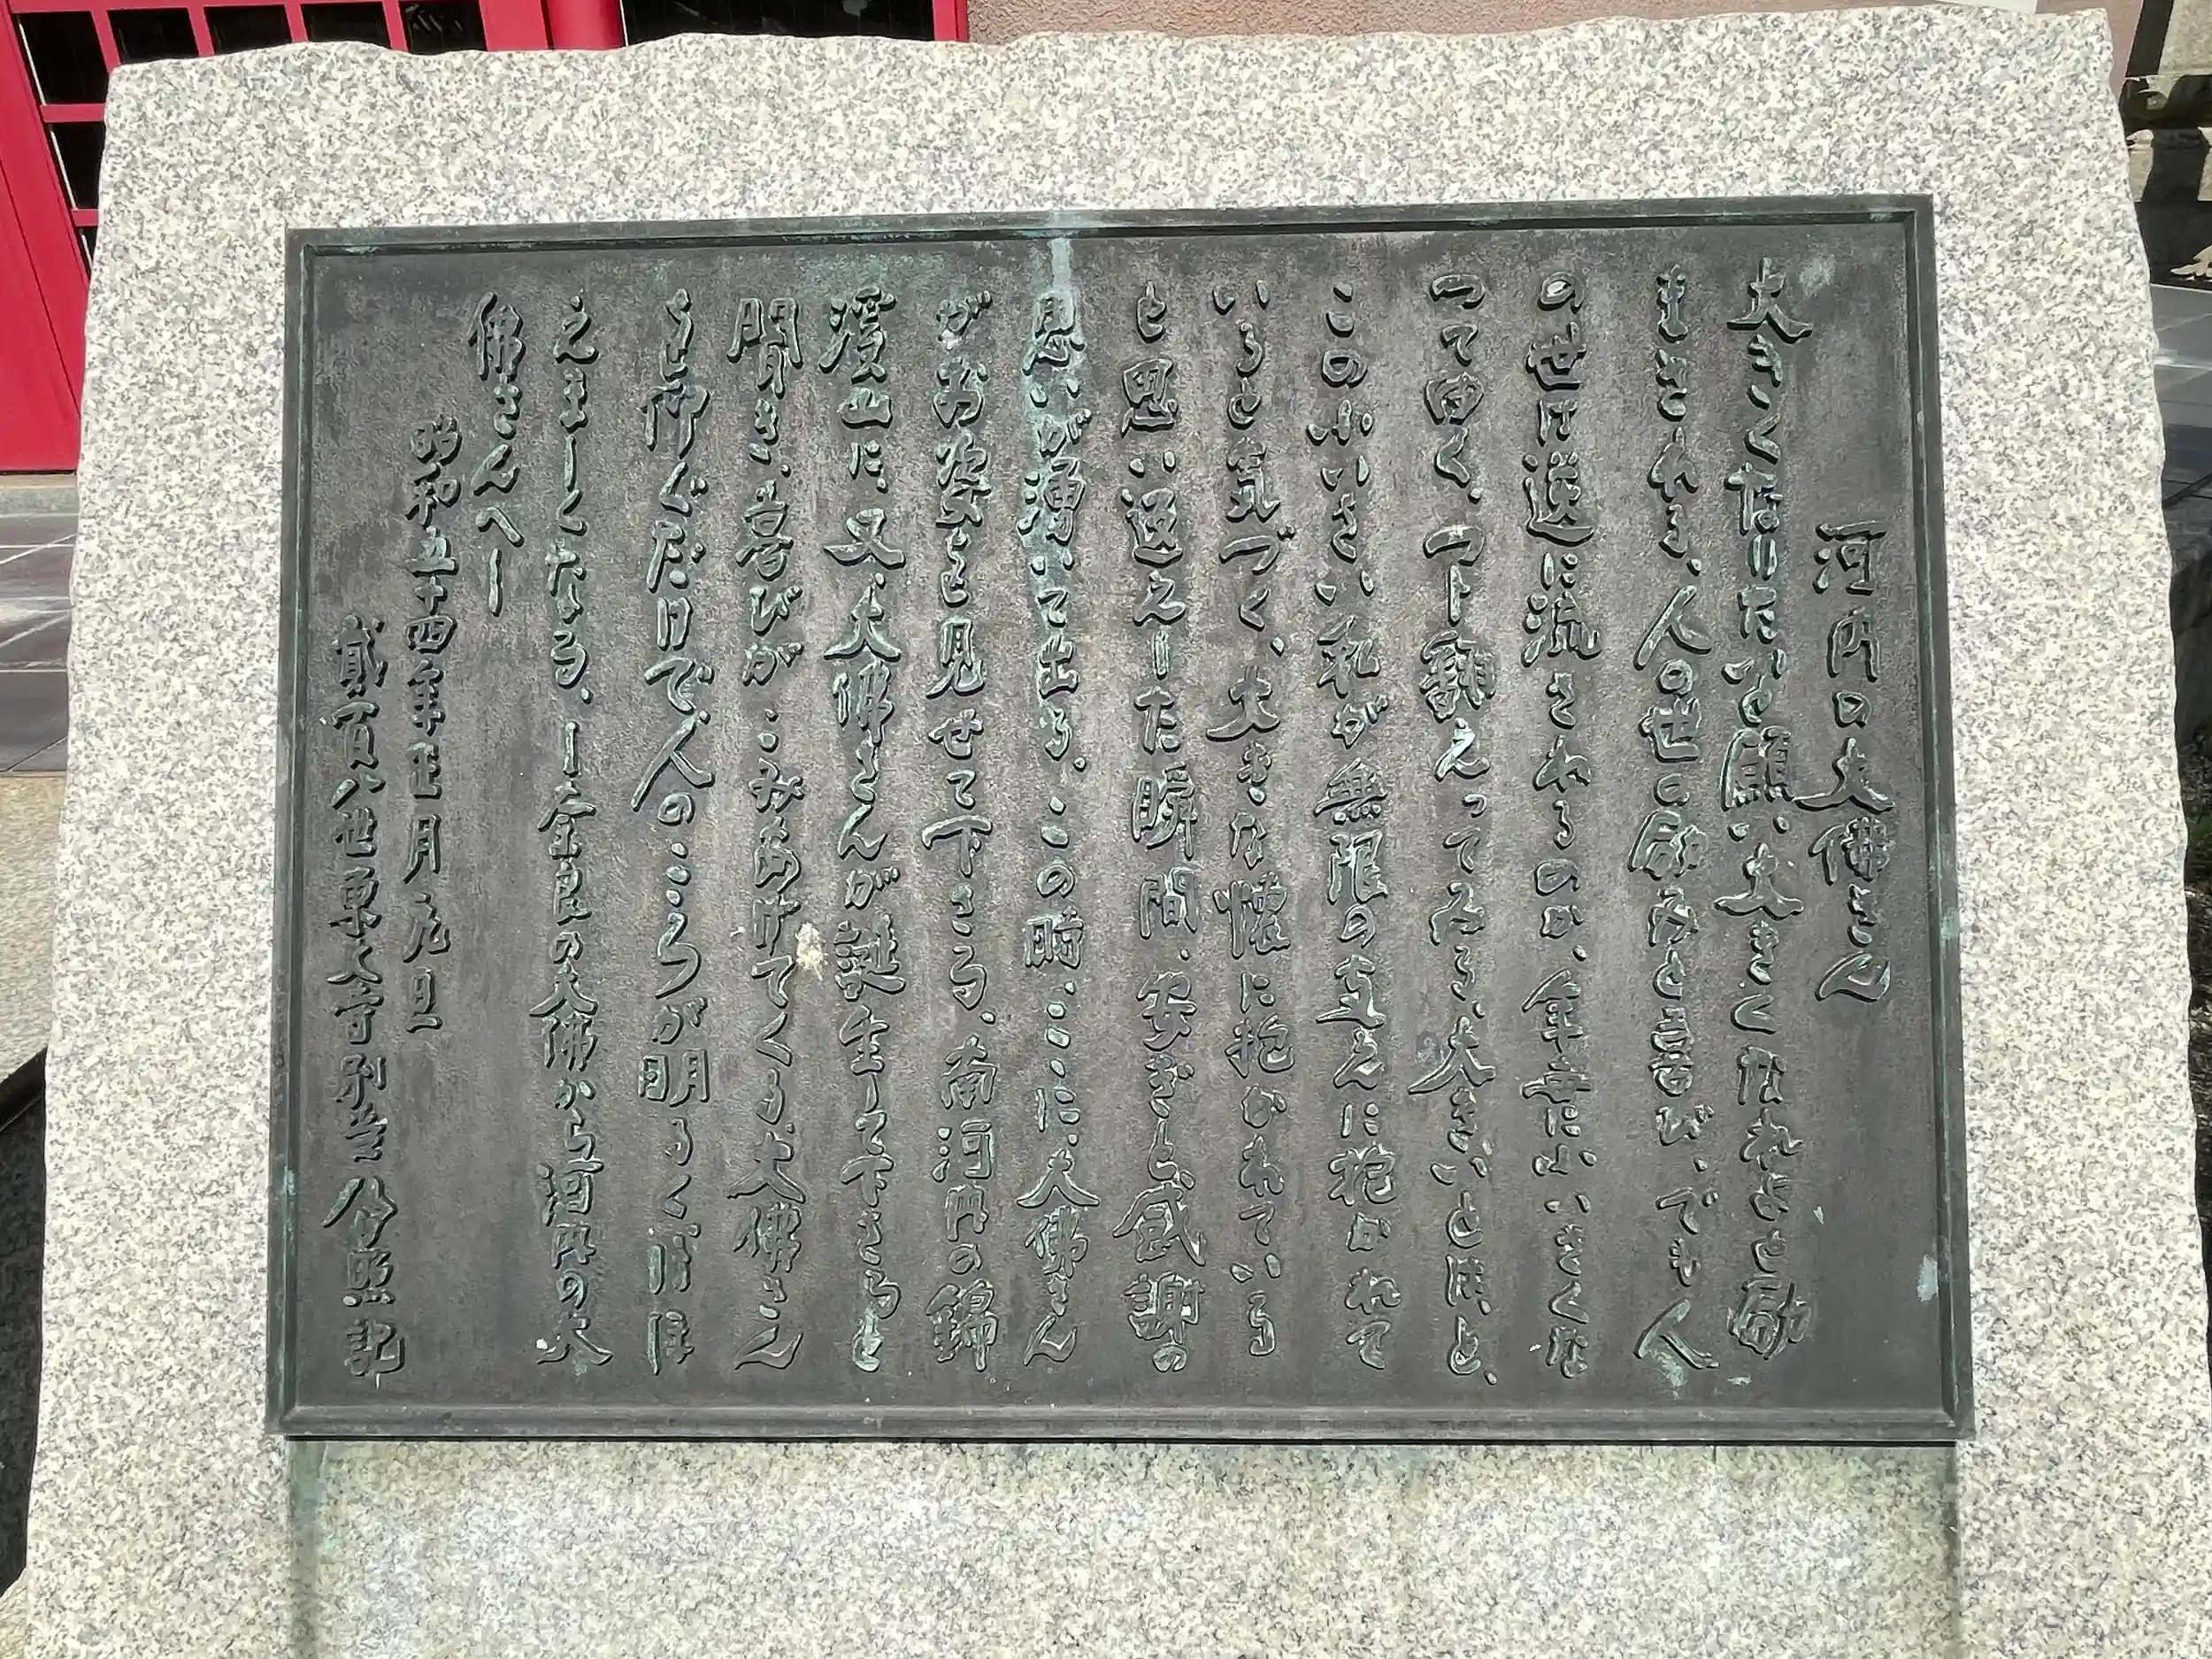 河内の大佛さん
大きくなりたいな願い大きくなれよと励
まされる、人の世の励みと喜び、でも人
の世は逆に流されるのか、年毎に小いさくな
って ゆく、つト踊えってみる、大きいとは、と、
この小いさい私が無限の支えに抱かれて
いると気づく、大きな懐に抱かれている
と思い返えした瞬間、安ぎと、感謝の
思いが湧いて出る、この時、ここに、大佛さん
がお姿を見せて下さる、南河内の錦
渓山に、又、大佛さんが誕生して下さると
聞き、喜びが、こみあげてくる、大佛さん
を仰ぐだけで、人のこころが明るく、ほほ
えましくなる、ー奈良の大佛から河内の大
佛さんへー
昭和五十四年正月元日
貳百八世東大寺別当 公照記